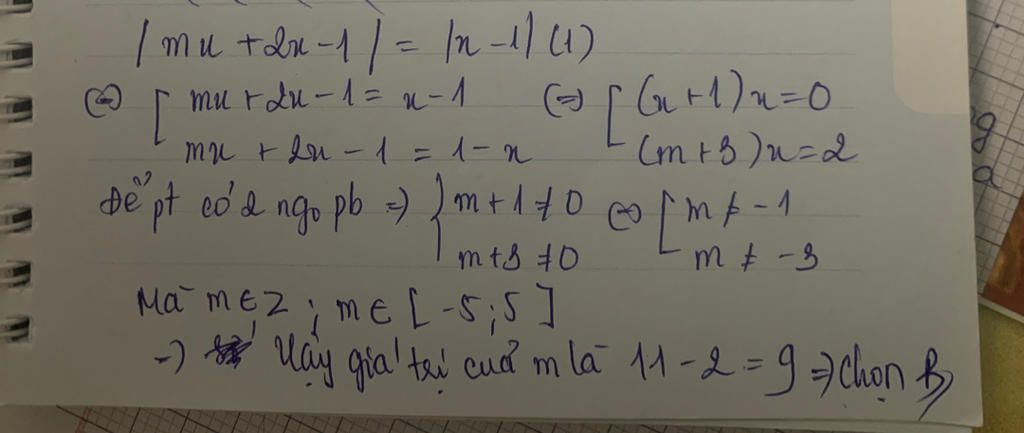 |mx + 2x - 1| = |x - 1| (1)
(=) [ mx + 2x - 1 = x - 1 (=) [ (x + 1)x = 0
mx + 2x - 1 = 1 - x (m + 3)x = 2
Để pt có 2 ngo pb => { m + 1 ≠ 0 (=) [ m ≠ -1
m + 3 ≠ 0 m ≠ -3
Mà m ∈ Z ; m ∈ [-5; 5]
=) Vậy giá trị của m là 11 - 2 = 9 => chọn B